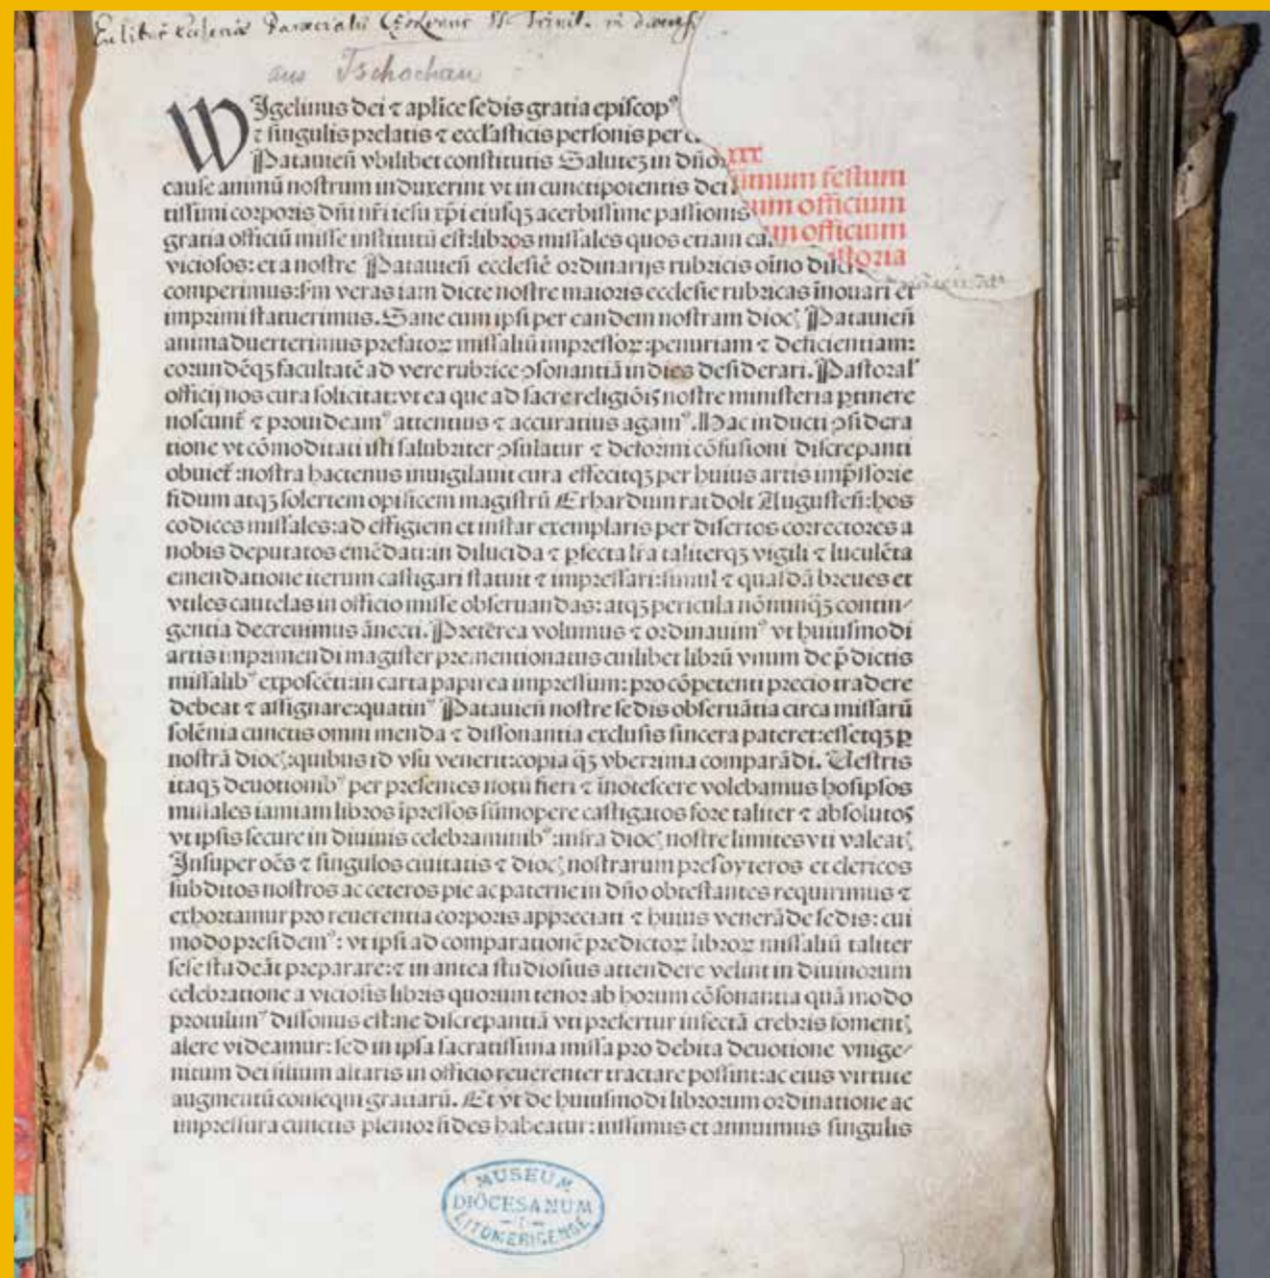 Ex libris Ecclesiae Parecialis SS. Trinit. in
aus Tschochau
WIgelinus dei ⁊ aplice sedis gratia episcopꝰ
⁊ singulis prelatis ⁊ ecclasticis personis per
Patauieñ vbilibet constitutis Saluteʒ in dño
xxx
cause animū nostrum induxerint vt in cunctipotentis dei
simum festum
tissimi corporis dñi nr̄i iesu xp̄i eiusqʒ acerbissime passionis
um officium
gratia officiū misse institutū est:libros missales quos etiam
m officium
viciosos: et a nostre Patauieñ ecclesiē ordinarijs rubricis oīno
storia
comperimus:fm veras iam dicte nostre maioris ecclesie rubricas īnouari et
imprimi statuerimus. Sane cum ipsi per eandem nostram dioc̄ Patauieñ
animaduerterimus prefatoꝝ missaliū impressoꝝ:penuriam ⁊ deficientiam:
corundēqʒ facultatē ad vere rubrice ꝯsonantiā indies desiderari. Pastoral
officij nos cura solicitat:vt ea que ad sacre religiōis nostre ministeria ꝑtinere
noscunt̄ ⁊ prouideamꝰ attentius ⁊ accuratius agamꝰ. Hac inducti ꝯsidera
tione vt cōmoditati isti salubriter ꝯsulatur ⁊ deformi cōfusioni discrepanti
obuiet̄:nostra hactenus inuigilauit cura effecitqʒ per huius artis imp̄ssorie
fidum atqʒ solertem opificem magistrū Erhardum ratdolt Augusteñ:hos
codices missales:ad effigiem et instar exemplaris per disertos correctores a
nobis deputatos emēdati:in dilucida ⁊ ꝑfecta lr̄a taliterqʒ vigili ⁊ luculēta
emendatione iterum castigari statuit ⁊ impressari:simul ⁊ quasdā breues et
vtiles cautelas in officio misse obseruandas:atqʒ pericula nōnunqʒ contin⸗
gentia decreuimus ānecti. Preterea volumus ⁊ ordinauimꝰ vt huiusmodi
artis imprimendi magister prementionatus cuilibet librū vnum de p̄dictis
missalibꝰ exposcēti:in carta papirea impressum:pro cōpetenti precio tradere
debeat ⁊ assignare:quatinꝰ Patauieñ nostre sedis obseruātia circa missarū
solēnia cunctis omni menda ⁊ dissonantia exclusis sincera pateret:essetqʒ ꝑ
nostrā dioc̄:quibus id vsu venerit:copia qʒ vberrima comparādi. Vestris
itaqʒ deuotionibꝰ per presentes notū fieri ⁊ īnotescere volebamus hosipsos
missales iamiam libros īpressos sūmopere castigatos fore taliter ⁊ absolutos
vt ipsis secure in diuinis celebraminibꝰ:infra dioc̄ nostre limites vti valeat̄
Insuper oēs ⁊ singulos ciuitatis ⁊ dioc̄ nostrarum presbyteros et clericos
subditos nostros ac ceteros pie ac paterne in dño obtestantes requirimus ⁊
exhortamur pro reuerentia corporis appreciati ⁊ huius venerāde sedis: cui
modo presidemꝰ: vt ipsi ad comparationē predictoꝝ libroꝝ missaliū taliter
sese studeāt preparare:⁊ in antea studiosius attendere velint in diuinorum
celebratione a viciosis libris quorum tenor ab horum cōsonantia quā modo
protulimꝰ dissonus est:ne discrepantiā vti prefertur infectā crebris foment̄
alere videamur: sed in ipsa sacratissima missa pro debita deuotione vnige⸗
nitum dei filium altaris in officio reuerenter tractare possint:ac eius virtute
augmentū consequi gratiarū. Et vt de huiusmodi librorum ordinatione ac
impressura cunctis plenior fides habeatur: iussimus et annuimus singulis
MUSEUM
DIÖCESANUM
LITOMERICENSE